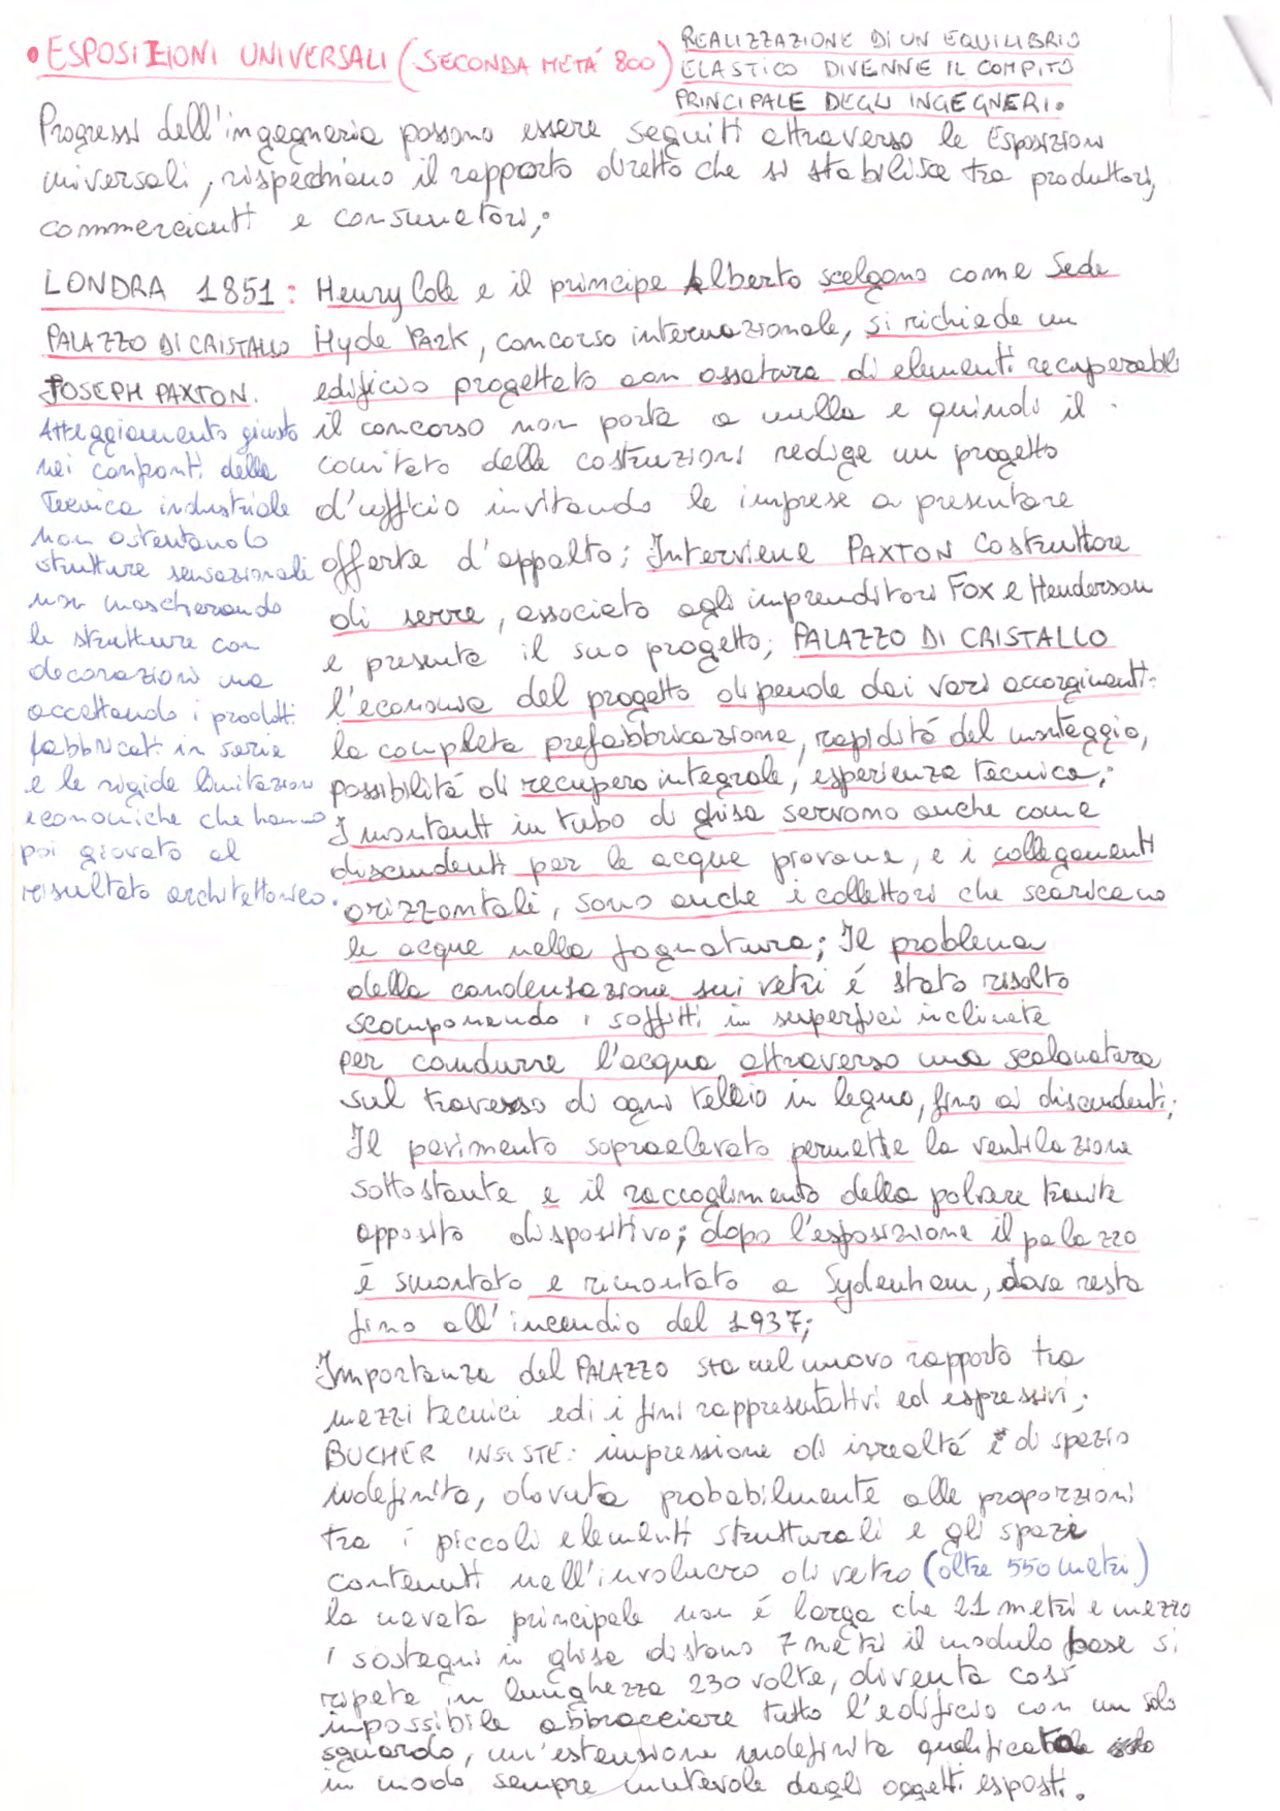 • ESPOSIZIONI UNIVERSALI (SECONDA METÁ 800)
REALIZZAZIONE DI UN EQUILIBRIO
ELASTICO DIVENNE IL COMPITO
PRINCIPALE DEGLI INGEGNERI.
Progressi dell'ingegneria possono essere seguiti attraverso le Esposizioni
universali, rispecchiano il rapporto diretto che si stabilisce tra produttori,
commercianti e consumatori;
LONDRA 1851:
PALAZZO DI CRISTALLO
JOSEPH PAXTON.
Atteggiamento giusto
nei confronti della
Tecnica industriale
non ostentando
strutture sensazionali
non mascherando
le strutture con
decorazioni ma
accettando i prodotti
fabbricati in serie
e le rigide limitazioni
economiche che hanno
poi giovato al
risultato architettonico.
Henry Cole e il principe Alberto scelgono come Sede
Hyde PARK, concorso internazionale, si richiede un
edificio progettato con ossatura di elementi recuperabili
il concorso non porta a nulla e quindi il
comitato delle costruzioni redige un progetto
d'ufficio invitando le imprese a presentare
offerte d'appalto; Interviene PAXTON costruttore
di serre, associato agli imprenditori Fox e Henderson
e presenta il suo progetto; PALAZZO DI CRISTALLO
l'economia del progetto dipende dai vari accorgimenti:
la completa prefabbricazione, rapidità del montaggio,
possibilità di recupero integrale, esperienza tecnica;
I montanti in tubo di ghisa servono anche come
discendenti per le acque piovane, e i collegamenti
orizzontali, sono anche i collettori che scaricano
le acque nella fognatura; Il problema
della condensazione sui vetri é stato risolto
scomponendo i soffitti in superfici inclinate
per condurre l'acqua attraverso una scalanatura
sul traverso di ogni telaio in legno, fino ai discendenti;
Il pavimento sopraelevato permette la ventilazione
sottostante e il raccoglimento della polvere tramite
apposito dispositivo; dopo l'esposizione il palazzo
é smontato e rimontato a Sydenham, dove resta
fino all'incendio del 1937;
Importanza del PALAZZO sta nel nuovo rapporto tra
mezzi tecnici ed i fini rappresentativi ed espressivi;
BUCHER INSISTE: impressione di irrealtá e di spazio
indefinito, dovuta probabilmente alle proporzioni
tra i piccoli elementi strutturali e gli spazi
contenuti nell'involucro di vetro (oltre 550 metri)
la navata principale non é larga che 21 metri e mezzo
i sostegni in ghisa distano 7 metri il modulo base si
ripete in lunghezza 230 volte, diventa così
impossibile abbracciare tutto l'edificio con un solo
sguardo, un'estensione indefinita qualificata
in modo sempre mutevole dagli oggetti esposti.